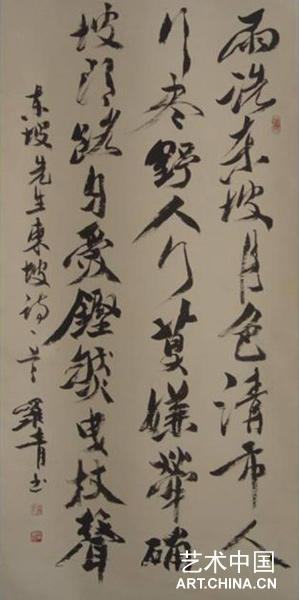 雨洗东坡月色清市人
行尽野人行莫嫌犖确
坡头路自爱鏗然曳杖聲
东坡先生東坡诗一首 羅青书
艺术中国
ART.CHINA.CN